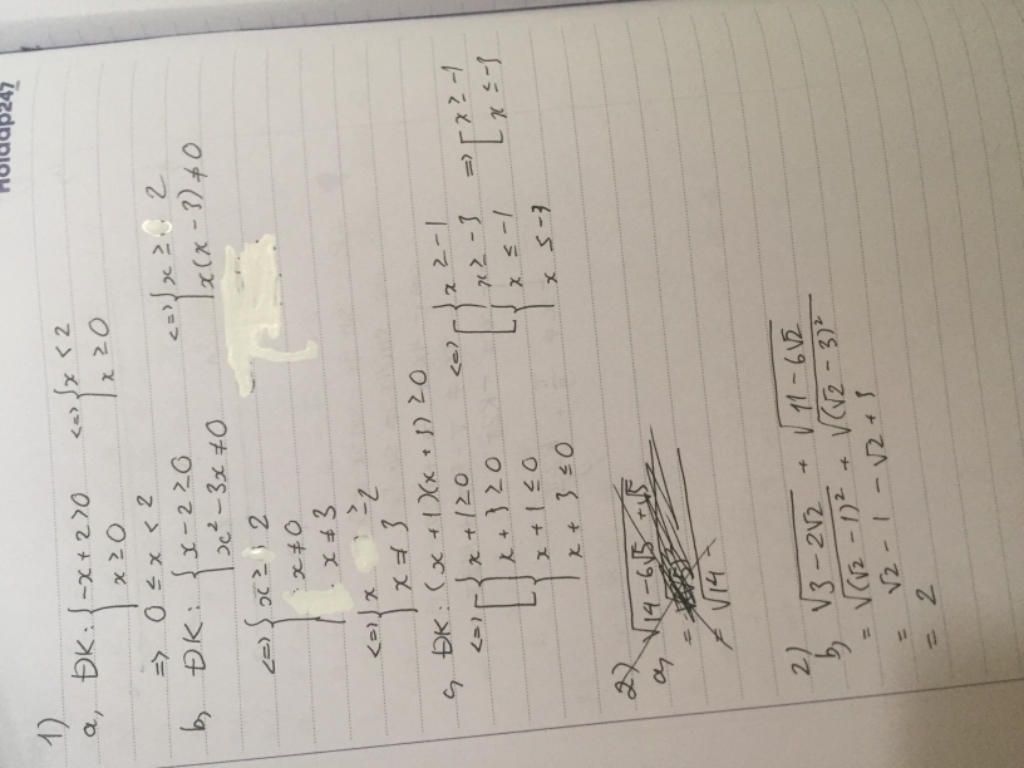 Hoidap247
1)
a, ĐK: { -x + 2 > 0 <=> { x < 2
{ x ≥ 0 { x ≥ 0
=> 0 ≤ x < 2
b, ĐK: { x - 2 ≥ 0 <=> { x ≥ 2
{ x² - 3x ≠ 0 { x(x - 3) ≠ 0
<=> { x ≥ 2
{ x ≠ 0
{ x ≠ 3
<=> { x ≥ 2
{ x ≠ 3
c, ĐK: (x + 1)(x + 3) ≥ 0
<=> [ { x + 1 ≥ 0 <=> [ { x ≥ -1 => [ x ≥ -1
{ x + 3 ≥ 0 { x ≥ -3 [ x ≤ -3
[ { x + 1 ≤ 0 [ { x ≤ -1
{ x + 3 ≤ 0 { x ≤ -3
2)
a, √14 - 6√5 + √5
=
= √14
2)
b, √3 - 2√2 + √11 - 6√2
= √(√2 - 1)² + √(√2 - 3)²
= √2 - 1 - √2 + 3
= 2